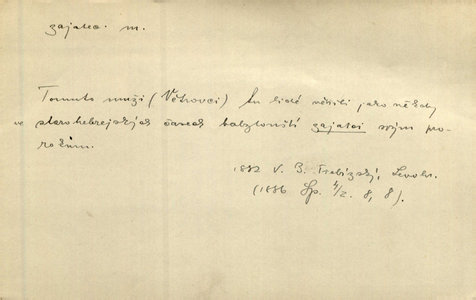 zajatec. m.
Tomuto muži (Větrovci) tu lidé věřili jako někdy
ve starohebrejských časech babylonští zajatci svým pro-
rokům.
1882 V. B. Třebízský, Levoh.
(1886 Sp. 4/2. 8, 8).